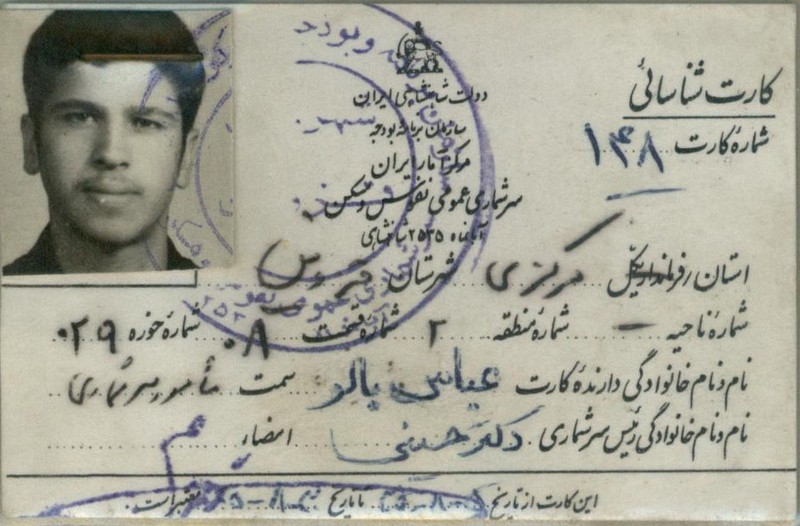 کارت شناسائی
شمارهٔ کارت ۱۴۸
دولت شاهنشاهی ایران
سازمان برنامه و بودجه
مرکز آمار ایران
سرشماری عمومی نفوس و مسکن
آبانماه ۲۵۳۵ شاهنشاهی
استان / فرمانداریکل مرکزی شهرستان
شمارهٔ ناحیه — شمارهٔ منطقه ۲ شمارهٔ قسمت ۰۸ شمارهٔ حوزه ۰۲۹
نام و نام خانوادگی دارندهٔ کارت عباس سمت مأمور سرشماری
نام و نام خانوادگی رئیس سرشماری دکتر حسنی امضاء
این کارت از تاریخ تا تاریخ معتبر است.